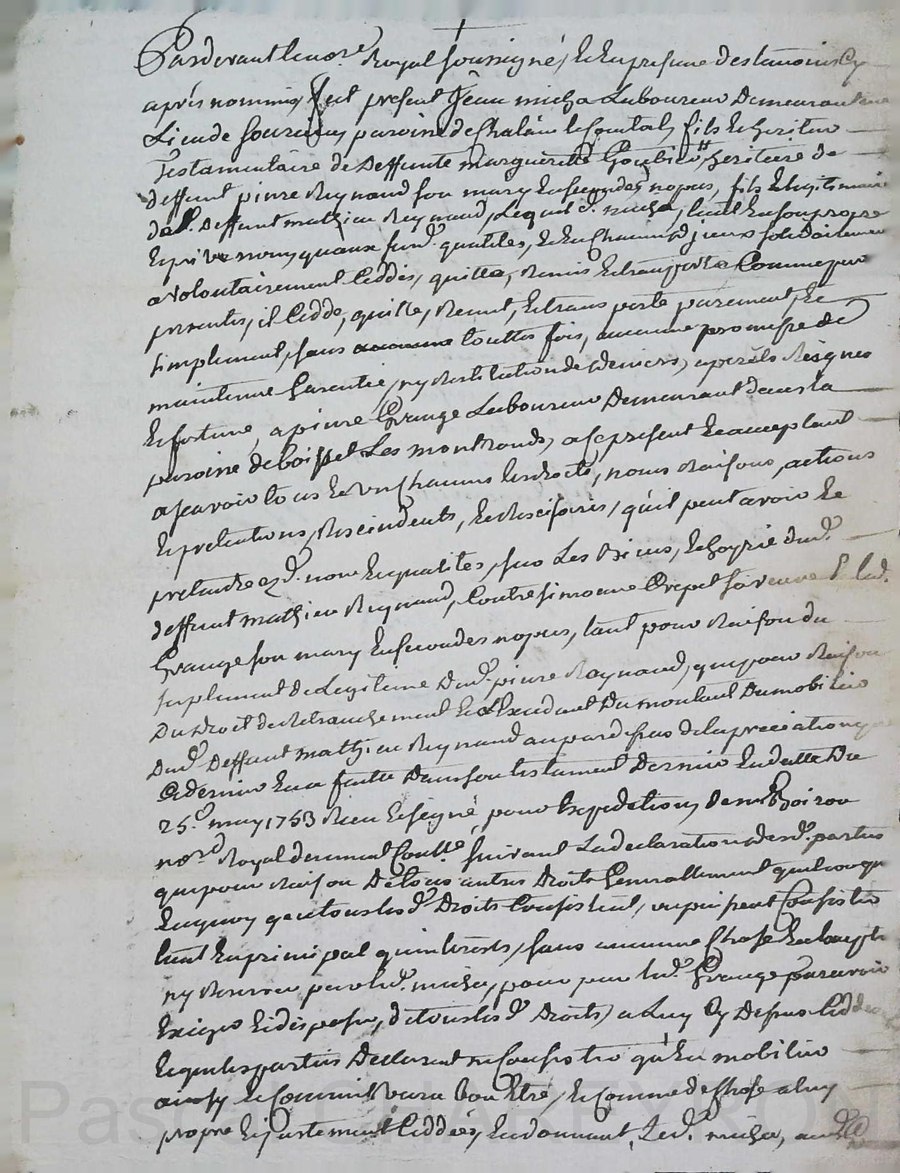 Pardevant le no.re Royal soussigné, et en presence des temoins cy
après nommés, fut present Jean micha Laboureur Demeurant au
Lieu de souzain paroisse de Chalain le Comtal, fils et heritier
Testamentaire de Deffunte marguerite heritiere de
deffunt pierre Reynaud son mary en secondes nopces, fils legitimaire
de d. Deffunt mathieu Reynaud, Lequel d. micha, tant en son propre
et privé nom, qu'aux susd. qualités, et en chacun d'jceux solidairement
a volontairement Ceddé, quitté, Remis et transporté Comme par
presentes, il Cedde, quitte, Remet, et transporte purement, et
simplement, sans touttes fois, aucune promesse de
maintenue Garentie, ny Restitution de deniers, à
et fortune, a pierre Grange Laboureur Demeurant dans la
paroisse de boisset Les montrond, a ce present et acceptant
a scavoir tous et un chacuns les droits, noms Raisons, actions
et pretentions, Rescindents, et Rescisoires, qu'il peut avoir et
pretendre esd. noms et qualités, sur Les biens, et hoyrie dud.
deffunt mathieu Reynaud, Contre simonne Crepet sa veuve et lad.
Grange son mary en secondes nopces, tant pour Raison du
suplement de Legitime Dud. pierre Reynaud, que pour Raison
Du Droit de Retranchement et Excedant Du montant Du mobilier
Dud. Deffunt mathieu Reynaud au pardessus de la preciation que
Ce dernier en a faitte Dans son testament Dernier en datte Du
25.e may 1753 Receu et signé pour Expedition, De m.e
no.re Royal dument Contt.é suivant La declaration desd. parties
que pour Raison De tous autres Droits Generallement quelconques
En quoy que tous lesd. Droits Consistent, ou puissent Consister
tant En principal qu'interets, sans aucune Chose En Excepter
ny Reserver par led. micha, pour par led. Grange
Exiger et disposer, de tous lesd. Droits a Luy Cy Dessus Ceddés
Lesquels parties Declarent ne Consister qu'En mobilier
ainsy et Comme verra bon Etre, et Comme de Chose a luy
propre et justement Ceddée, En donnant, Led. micha, aud.
Pascal CHAFFYRON